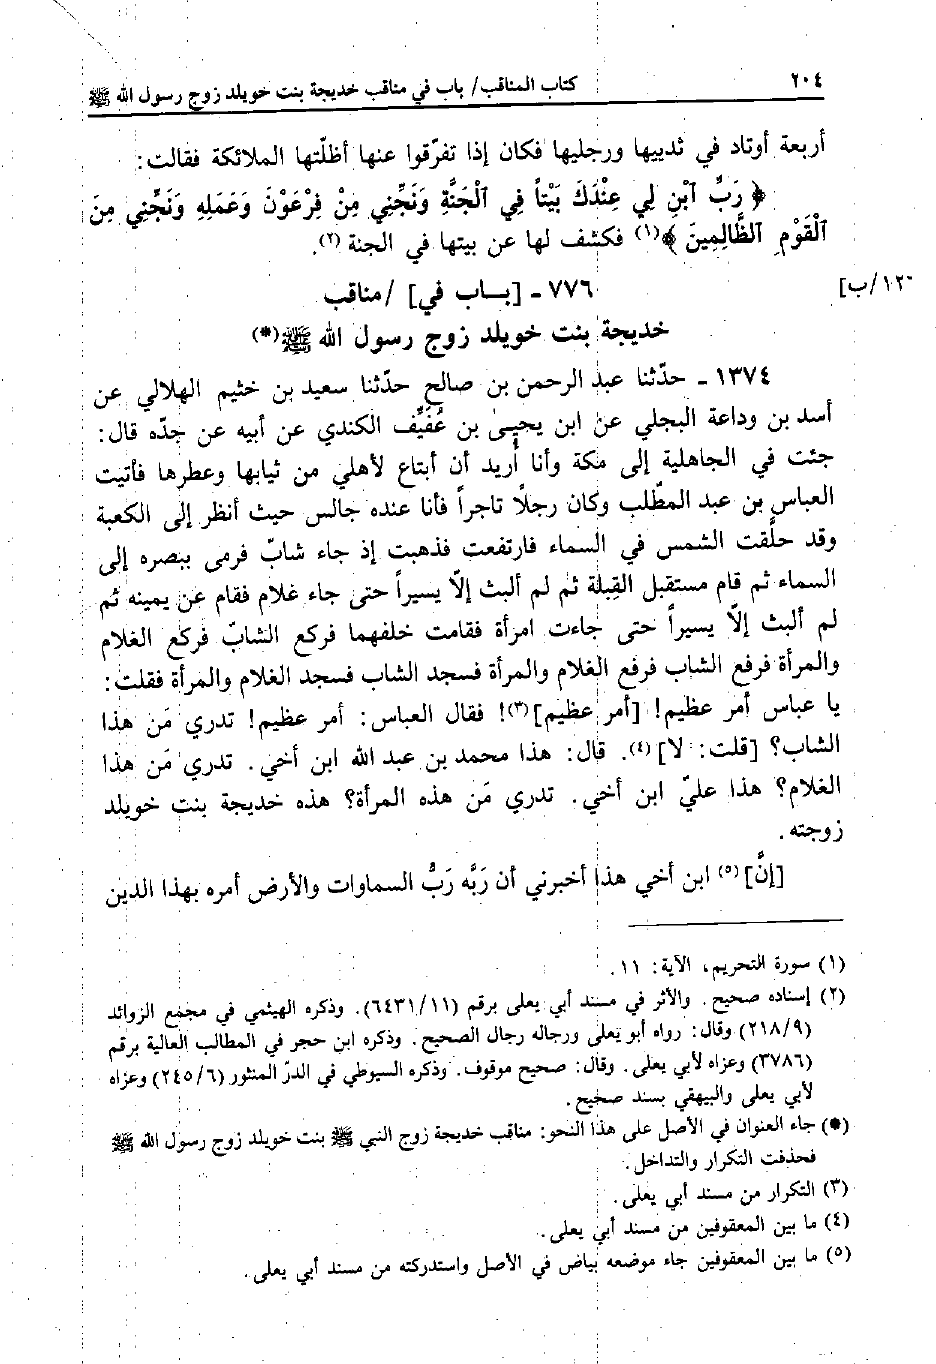 ٢٠٤ كتاب المناقب/ باب في مناقب خديجة بنت خويلد زوج رسول الله ﷺ
أربعة أوتاد في ثدييها ورجليها فكان إذا تفرّقوا عنها أظلّتها الملائكة فقالت:
﴿ رَبِّ ٱبْنِ لِي عِنْدَكَ بَيْتاً فِي ٱلْجَنَّةِ وَنَجِّنِي مِنْ فِرْعَوْنَ وَعَمَلِهِ وَنَجِّنِي مِنَ
ٱلْقَوْمِ ٱلظَّالِمِينَ ﴾(١) فكشف لها عن بيتها في الجنة (٢).
٧٧٦ ـ [بــاب في] /مناقب
[١٢٠/ب]
خديجة بنت خويلد زوج رسول الله ﷺ(*)
١٣٧٤ ـ حدّثنا عبد الرحمن بن صالح حدّثنا سعيد بن خثيم الهلالي عن
أسد بن وداعة البجلي عن ابن يحيىٰ بن عُفَيِّف الكندي عن أبيه عن جدّه قال:
جئت في الجاهلية إلى مكة وأنا أُريد أن أبتاع لأهلي من ثيابها وعطرها فأتيت
العباس بن عبد المطّلب وكان رجلاً تاجراً فأنا عنده جالس حيث أنظر إلى الكعبة
وقد حلَّقت الشمس في السماء فارتفعت فذهبت إذ جاء شابّ فرمى ببصره إلى
السماء ثم قام مستقبل القِبلة ثم لم ألبث إلاّ يسيراً حتى جاء غلام فقام عن يمينه ثم
لم ألبث إلاّ يسيراً حتى جاءت امرأة فقامت خلفهما فركع الشابّ فركع الغلام
والمرأة فرفع الشاب فرفع الغلام والمرأة فسجد الشاب فسجد الغلام والمرأة فقلت:
يا عباس أمر عظيم! [أمر عظيم](٣)! فقال العباس: أمر عظيم! تدري مَن هذا
الشاب؟ [قلت: لا](٤). قال: هذا محمد بن عبد الله ابن أخي. تدري مَن هذا
الغلام؟ هذا عليّ ابن أخي. تدري مَن هذه المرأة؟ هذه خديجة بنت خويلد
زوجته.
[إنَّ](٥) ابن أخي هذا أخبرني أن رَبَّه رَبُّ السماوات والأرض أمره بهذا الدين
(١) سورة التحريم، الآية: ١١.
(٢) إسناده صحيح. والأثر في مسند أبي يعلى برقم (٦٤٣١/١١). وذكره الهيثمي في مجمع الزوائد
(٢١٨/٩) وقال: رواه أبو يعلى ورجاله رجال الصحيح. وذكره ابن حجر في المطالب العالية برقم
(٣٧٨٦) وعزاه لأبي يعلى. وقال: صحيح موقوف. وذكره السيوطي في الدرّ المنثور (٢٤٥/٦) وعزاه
لأبي يعلى والبيهقي بسند صحيح.
(*) جاء العنوان في الأصل على هذا النحو: مناقب خديجة زوج النبي ﷺ بنت خويلد زوج رسول الله ﷺ
فحذفت التكرار والتداخل.
(٣) التكرار من مسند أبي يعلى.
(٤) ما بين المعقوفين من مسند أبي يعلى.
(٥) ما بين المعقوفين جاء موضعه بياض في الأصل واستدركته من مسند أبي يعلى.